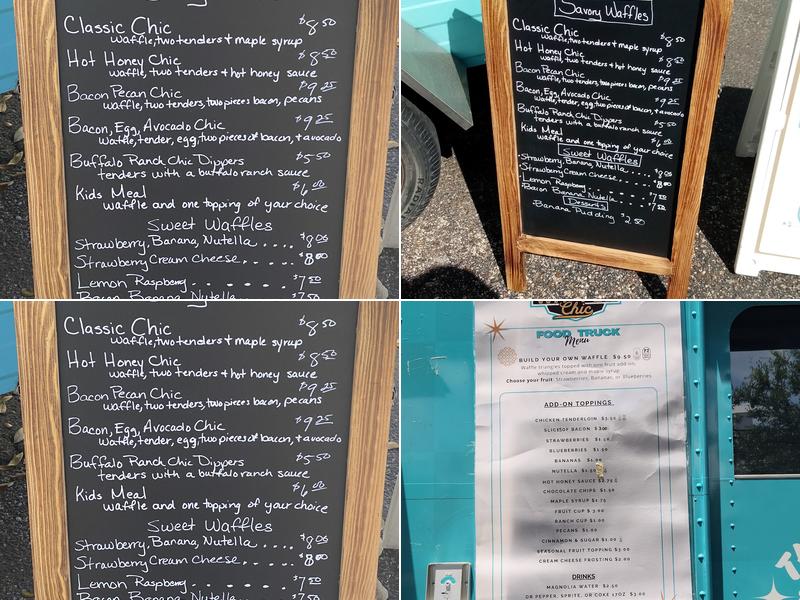 Classic Chic $8.50
waffle, two tenders + maple syrup
Hot Honey Chic $8.50
waffle, two tenders + hot honey sauce
Bacon Pecan Chic $9.25
waffle, two tenders, two pieces bacon, pecans
Bacon, Egg, Avocado Chic $9.25
waffle, tender, egg, two pieces of bacon, + avocado
Buffalo Ranch Chic Dippers $5.50
tenders with a buffalo ranch sauce
Kids Meal $6.00
waffle and one topping of your choice
Sweet Waffles
Strawberry, Banana, Nutella .... $8.00
Strawberry Cream Cheese .... $8.00
Lemon Raspberry - - - - - - $7.50
Bacon Banana, Nutella
Savory Waffles
Classic Chic $8.50
waffle, two tenders + maple syrup
Hot Honey Chic $8.50
waffle, two tenders + hot honey sauce
Bacon Pecan Chic $9.25
waffle, two tenders, two pieces bacon, pecans
Bacon, Egg, Avocado Chic $9.25
waffle, tender, egg, two pieces of bacon, + avocado
Buffalo Ranch Chic Dippers $5.50
tenders with a buffalo ranch sauce
Kids Meal $6.00
waffle and one topping of your choice
Sweet Waffles
Strawberry, Banana, Nutella .... $8.00
Strawberry Cream Cheese .... $8.00
Lemon Raspberry - - - - - $7.50
Bacon Banana Nutella $7.50
Desserts
Banana Pudding $2.50
Classic Chic $8.50
waffle, two tenders + maple syrup
Hot Honey Chic $8.50
waffle, two tenders + hot honey sauce
Bacon Pecan Chic $9.25
waffle, two tenders, two pieces bacon, pecans
Bacon, Egg, Avocado Chic $9.25
waffle, tender, egg, two pieces of bacon, + avocado
Buffalo Ranch Chic Dippers $5.50
tenders with a buffalo ranch sauce
Kids Meal $6.00
waffle and one topping of your choice
Sweet Waffles
Strawberry, Banana, Nutella .... $8.00
Strawberry Cream Cheese .... $8.00
Lemon Raspberry - - - - - - $7.50
Bacon Banana, Nutella
Chic
FOOD TRUCK
Menu
BUILD YOUR OWN WAFFLE $9.50
Waffle triangles topped with one fruit add-on,
whipped cream and maple syrup
Choose your fruit: Strawberries, Bananas, or Blueberries
ADD-ON TOPPINGS
CHICKEN TENDERLOIN $3.50
SLICE OF BACON $3.00
STRAWBERRIES $1.50
BLUEBERRIES $1.50
BANANAS $1.00
NUTELLA $1.50
HOT HONEY SAUCE $0.75
CHOCOLATE CHIPS $1.50
MAPLE SYRUP $1.75
FRUIT CUP $3.00
RANCH CUP $1.00
PECANS $1.00
CINNAMON & SUGAR $1.00
SEASONAL FRUIT TOPPING $3.00
CREAM CHEESE FROSTING $2.00
DRINKS
MAGNOLIA WATER $2.50
DR PEPPER, SPRITE, OR COKE 17OZ $3.00